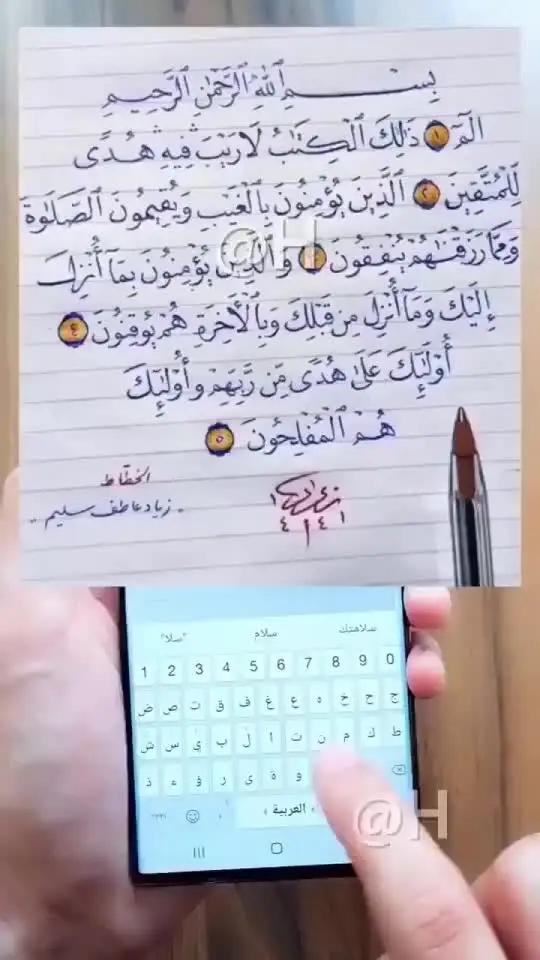 بِسْمِ ٱللَّهِ ٱلرَّحْمَٰنِ ٱلرَّحِيمِ
الٓمٓ ١ ذَٰلِكَ ٱلْكِتَٰبُ لَا رَيْبَ فِيهِ هُدًى
لِلْمُتَّقِينَ ٢ ٱلَّذِينَ يُؤْمِنُونَ بِٱلْغَيْبِ وَيُقِيمُونَ ٱلصَّلَوٰةَ
وَمِمَّا رَزَقْنَٰهُمْ يُنفِقُونَ ٣ وَٱلَّذِينَ يُؤْمِنُونَ بِمَآ أُنْزِلَ
إِلَيْكَ وَمَآ أُنْزِلَ مِن قَبْلِكَ وَبِٱلْأَخِرَةِ هُمْ يُوقِنُونَ ٤
أُوْلَٰٓئِكَ عَلَىٰ هُدًى مِّن رَّبِّهِمْ وَأُوْلَٰٓئِكَ
هُمُ ٱلْمُفْلِحُونَ ٥
الخطاط
زياد عاطف سليم
١٤٤١
@H
"سلا" سلام سلامتك
1 2 3 4 5 6 7 8 9 0
ض ص ث ق ف غ ع ه خ ح ج
ش س ي ب ل ا ت ن م ك ط
ذ ء ؤ ر ى ة و
العربية
@H